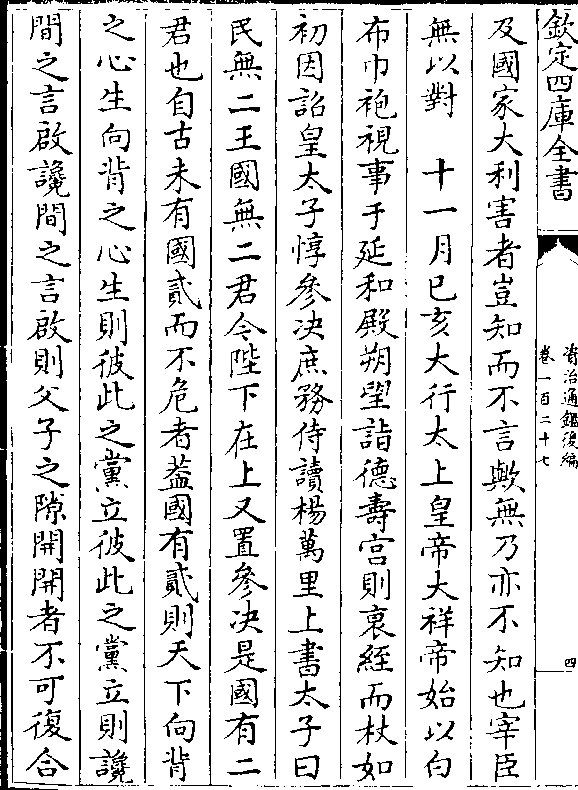 欽定四庫全書
資治通鑑後編
卷一百二十七
四
及國家大利害者豈知而不言歟無乃亦不知也宰臣
無以對　十一月己亥大行太上皇帝大祥帝始以白
布巾袍視事于延和殿朔望詣德壽宫則衰絰而杖如
初因詔皇太子惇參决庶務侍讀楊萬里上書太子曰
民無二王國無二君今陛下在上又置參决是國有二
君也自古未有國貳而不危者葢國有貳則天下向背
之心生向背之心生則彼此之黨立彼此之黨立則讒
間之言啟讒間之言啟則父子之隙開開者不可復合